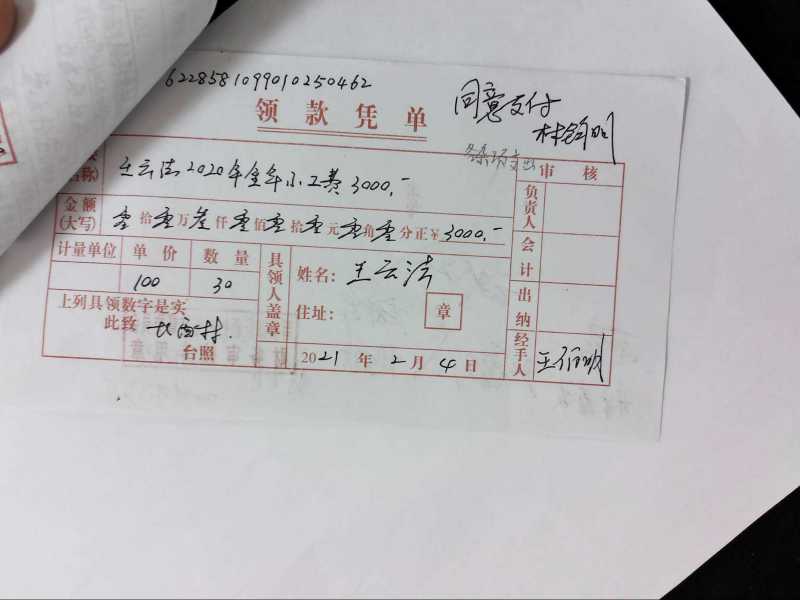 6228581099010250462
领款凭单
同意支付
审核
名称)
王云法2020年全年小工费3000.-
金额
(大写)
零拾零万叁仟零佰零拾零元零角零分正¥3000.-
计量单位 单价 数量
100 30
上列具领数字是实
此致
台照
具领人盖章
姓名:王云法
住址:
章
2021年2月4日
负责人
会计
出纳
经手人